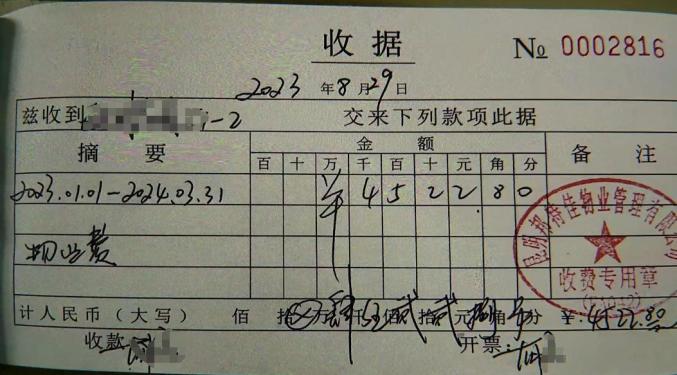 收据
№ 0002816
2023年8月29日
兹收到 -2 交来下列款项此据
摘要 金额 备注
百 十 万 千 百 十 元 角 分
2023.01.01-2024.03.31 ¥ 4 5 2 2 8 0
物业费
昆明邦特佳物业管理有限公司
收费专用章
计人民币（大写） 佰 拾 万 肆仟 伍佰 贰拾 贰元 捌角 分 ¥：4522.80
收款 开票